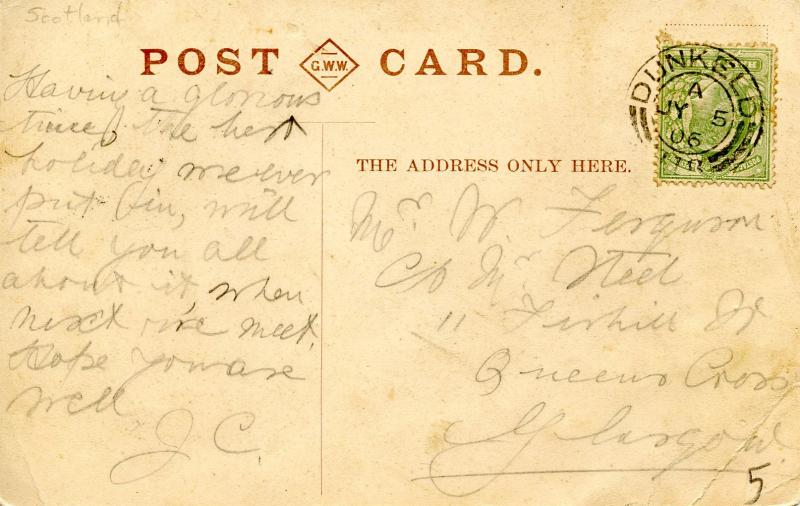 Scotland
POST G.W.W. CARD.
Having a glorious
time, the best
holiday we ever
put in, will
tell you all
about it, when
next we meet.
Hope you are
well
J C.
THE ADDRESS ONLY HERE.
Mr W Ferguson
C/o Mr Steel
11 Firhill St
Queens Cross
Glasgow
5
DUNKELD
A
JY 5
06